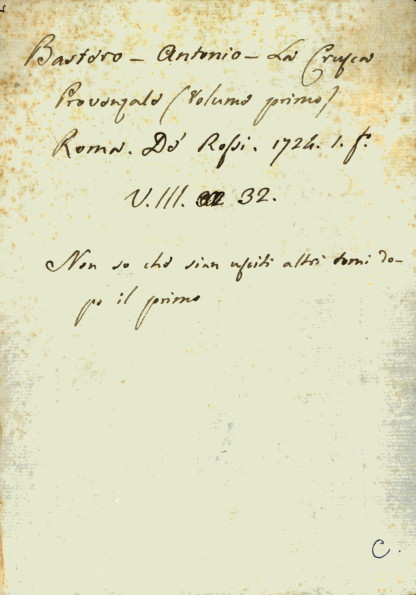 Bastero - Antonio - La Crusca
Provenzale (Volume primo)
Roma. De' Rossi. 1724. 1. fº.
V. III. 32.
Non so che sian usciti altri tomi do-
po il primo
C.